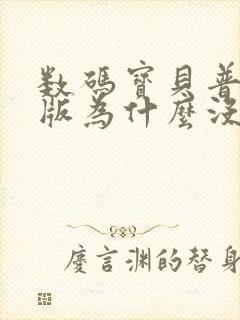 数碼寶貝普
版為什麼沒
慶言淵的替身